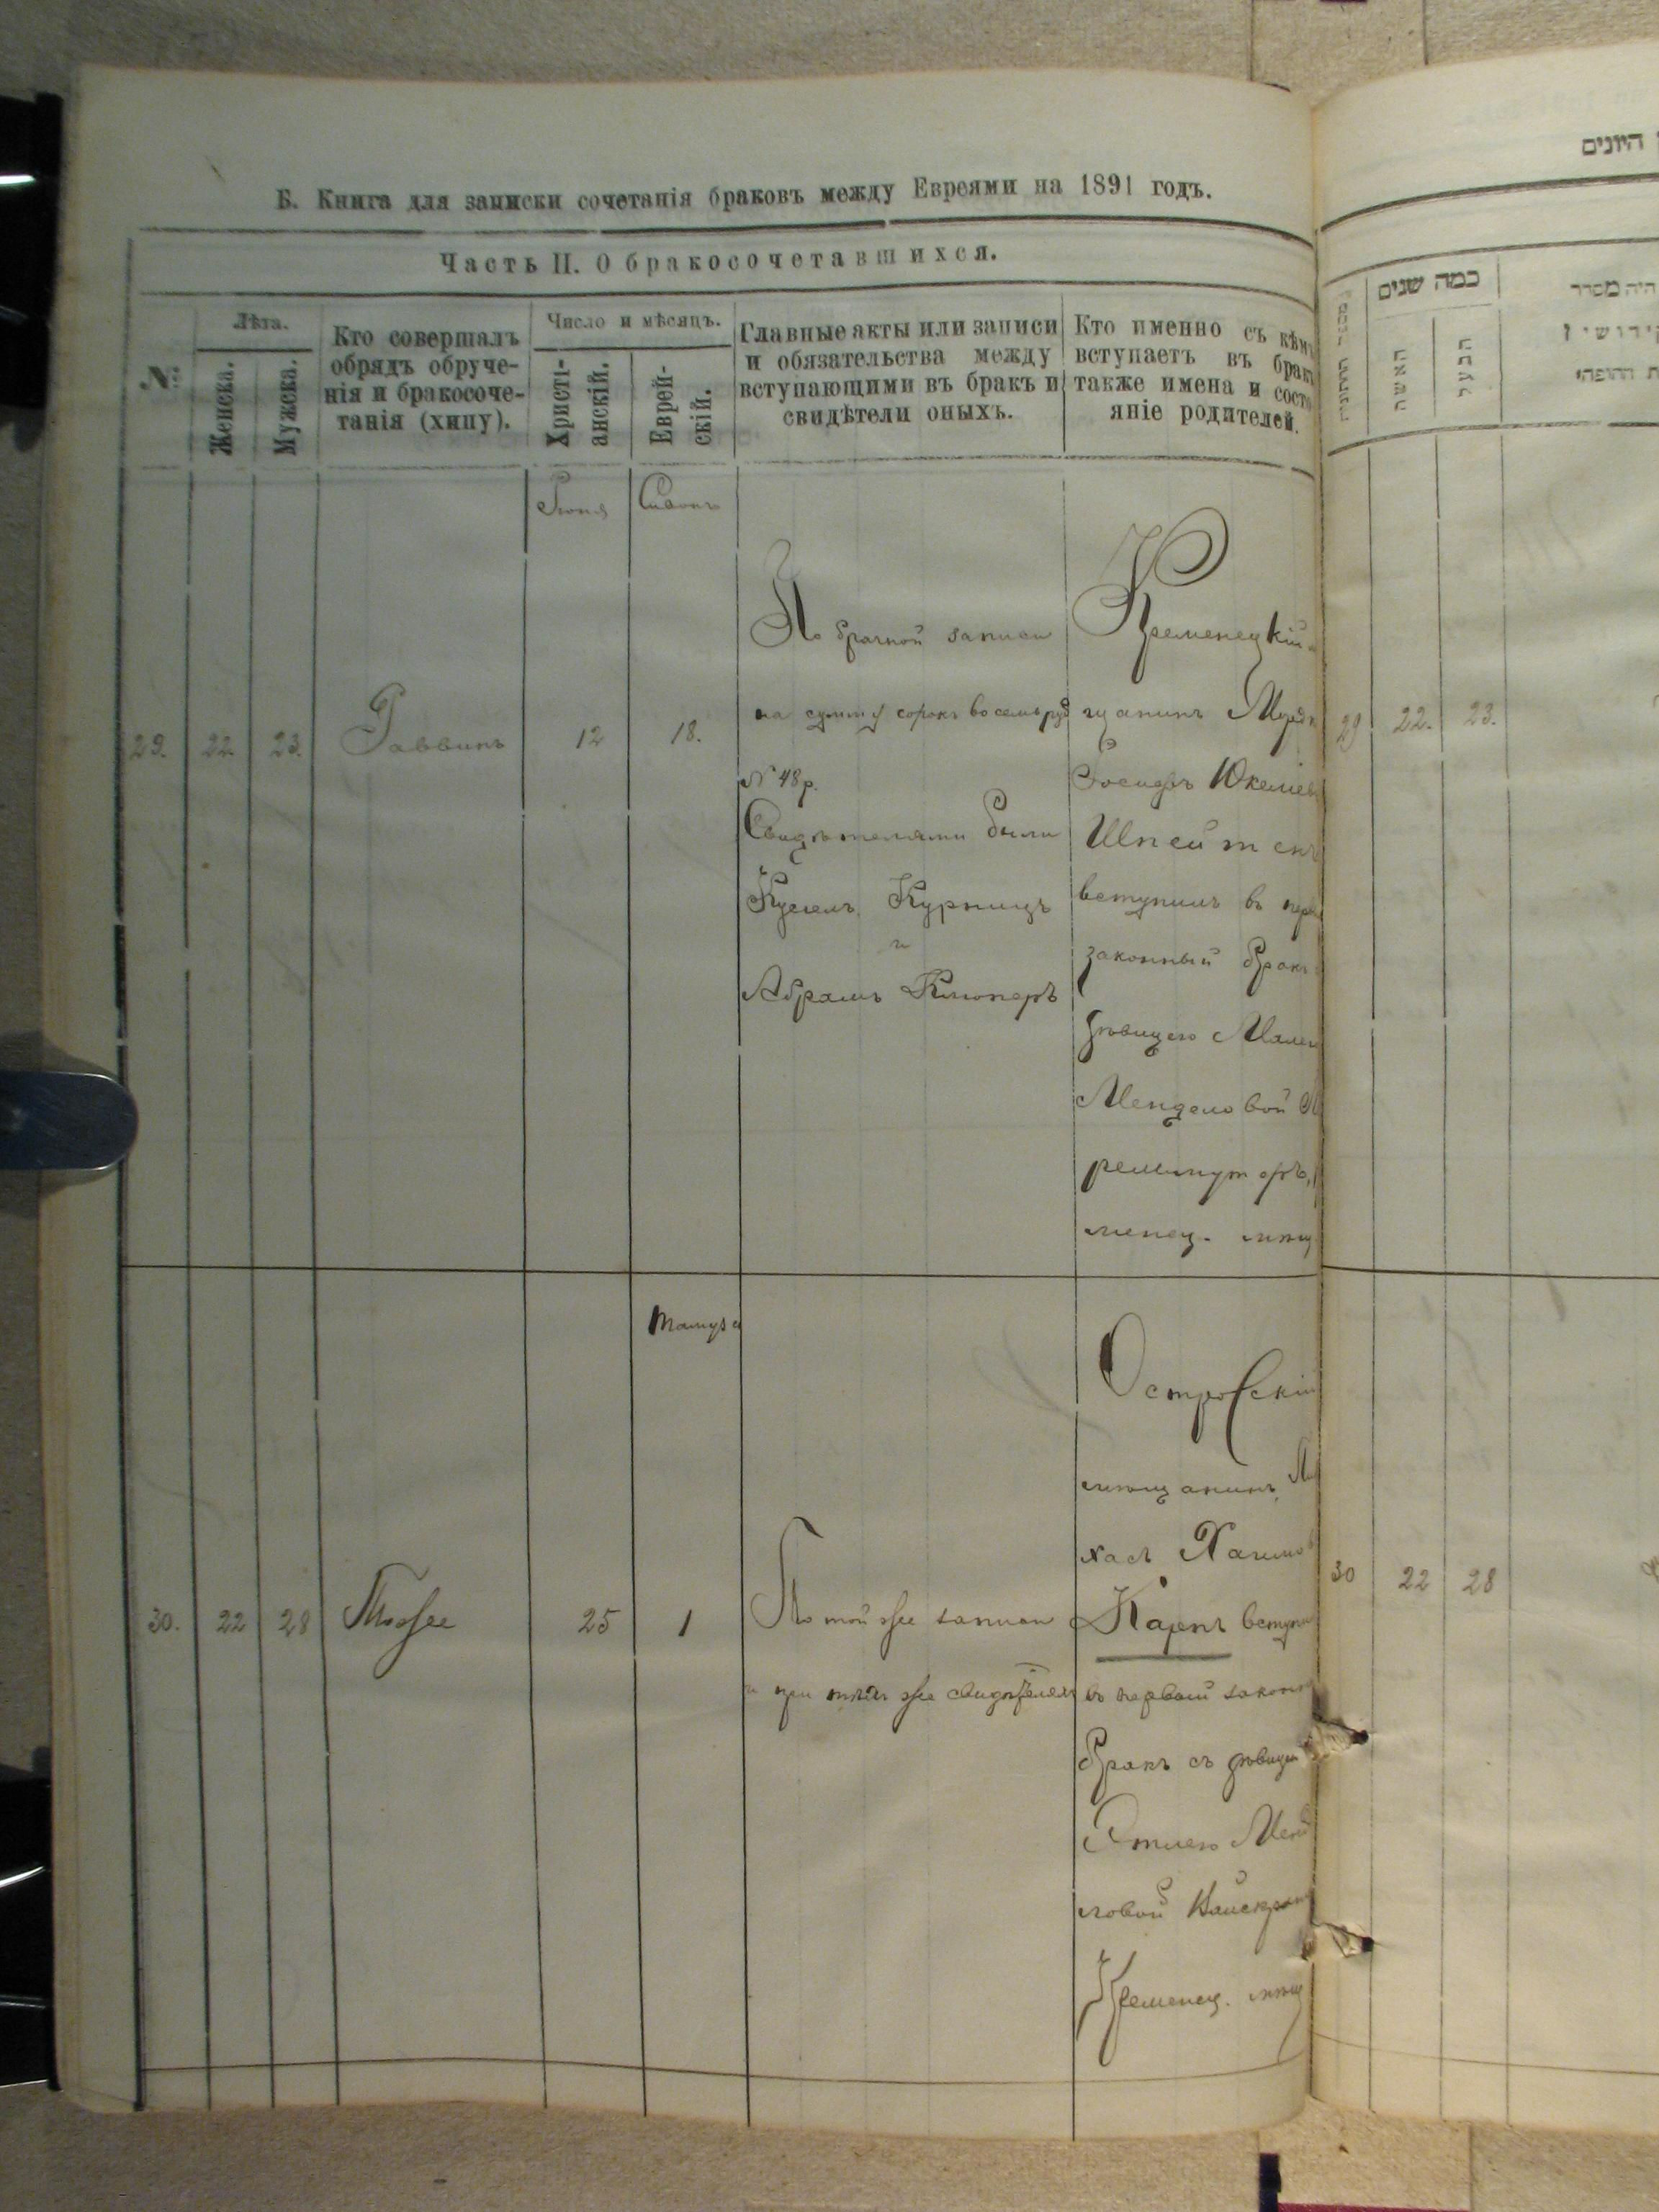 היונים
Б. Книга для записки сочетанія браковъ между Евреями на 1891 годъ.
Часть II. О бракосочетавшихся.
№
Лѣта.
Женска.
Мужска.
Кто совершалъ
обрядъ обруче-
нія и бракосоче-
танія (хипу).
Число и мѣсяцъ.
Христі-
анскій.
Еврей-
скій.
Главные акты или записи
и обязательства между
вступающими въ бракъ и
свидѣтели оныхъ.
Кто именно съ кѣмъ
вступаетъ въ бракъ
также имена и состо
яніе родителей.
Іюня
Сивонъ
29. 22. 23. Раввинъ 12 18.
По брачной записи
на сумму сорокъ восемь руб
№ 48 р.
Свидѣтелями были
Кусель Курницъ
и
Абрамъ Клюперъ
Кременецкій
щанинъ
Іосифъ Юкелев
Шпейтекъ
вступилъ въ пер
законный бракъ
дѣвицею
Менделовой
менец. мѣщ
Тамуза
30. 22 28 Тоже 25 1
По той же записи
и при тѣхъ же свидѣтелях
Островскій
мѣщанинъ
Хаимов
Карпъ вступи
въ первый законн
бракъ съ дѣвицею
Этлею Менд
ловой
Кременец. мѣщ
כמה שנים
האשה
הבעל
היה מסדר
קידושין
ת החופה
29 22. 23.
30 22 28